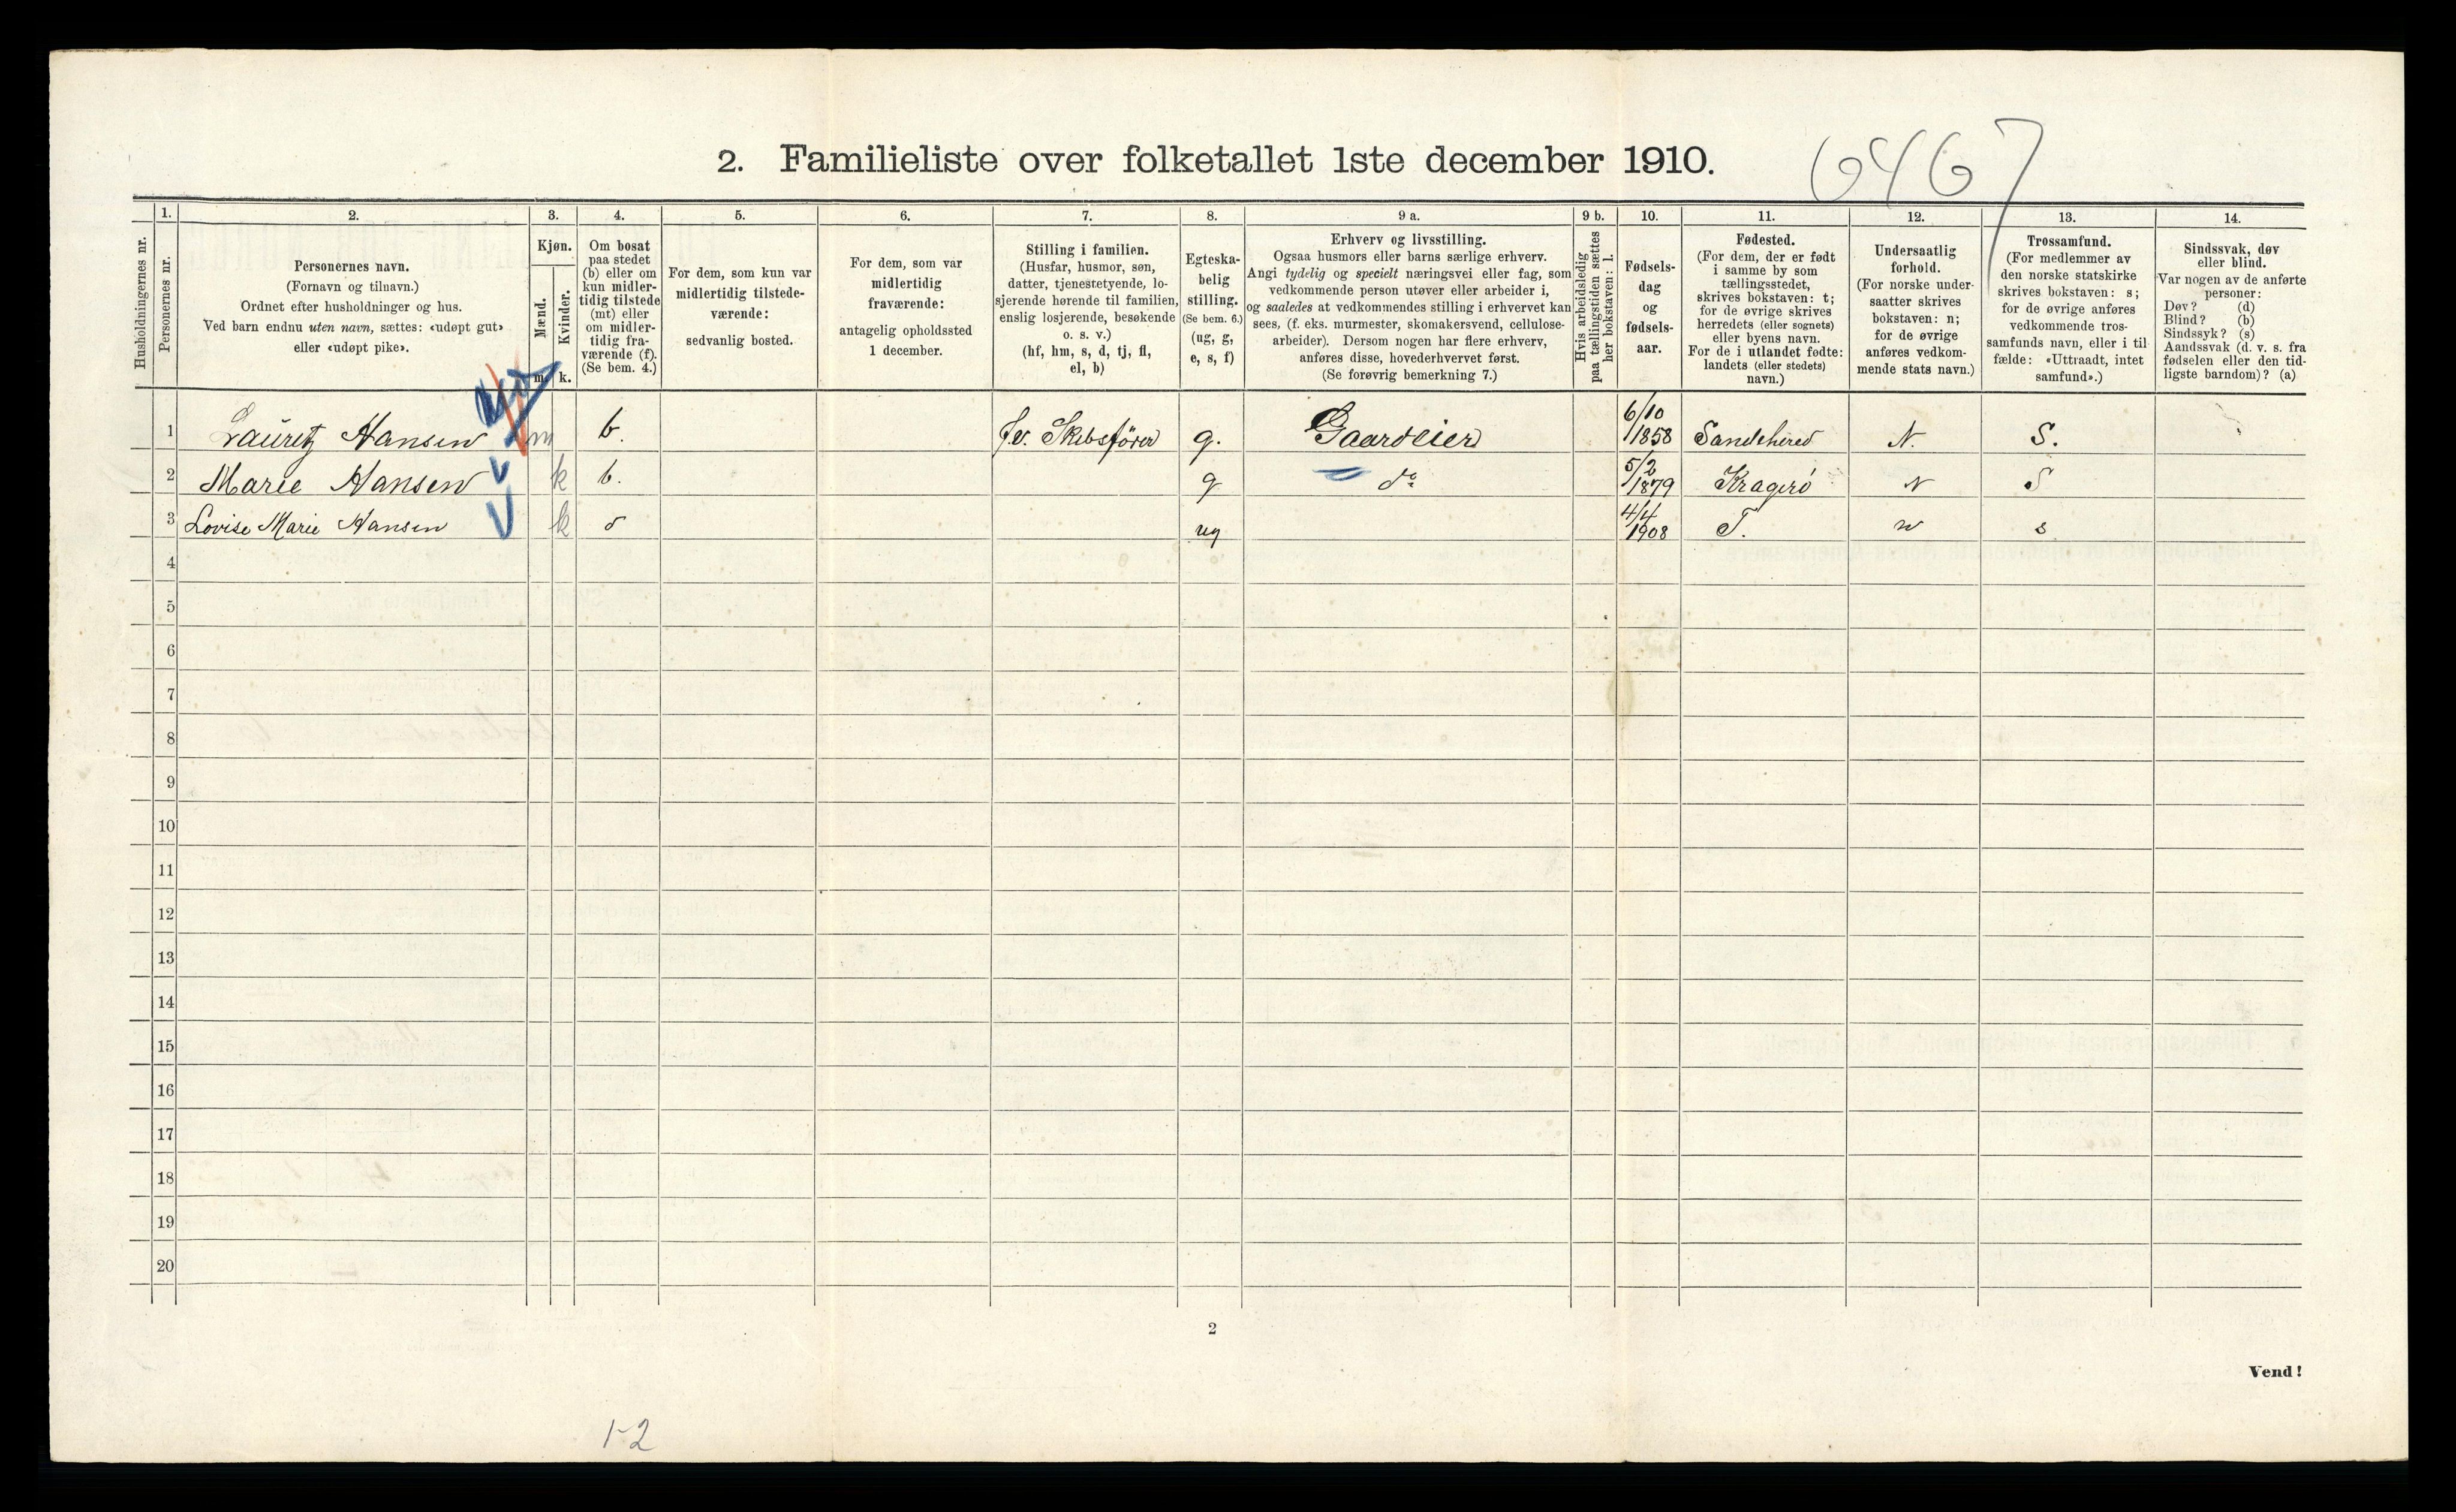 2. Familieliste over folketallet 1ste december 1910.
6467
1. 2. 3. 4. 5. 6. 7. 8. 9 a. 9 b. 10. 11. 12. 13. 14.
Husholdningernes nr.
Personernes nr.
Personernes navn.
(Fornavn og tilnavn.)
Ordnet efter husholdninger og hus.
Ved barn endnu uten navn, sættes: «udøpt gut»
eller «udøpt pike».
Kjøn.
Mænd.
Kvinder.
m. k.
Om bosat
paa stedet
(b) eller om
kun midler-
tidig tilstede
(mt) eller
om midler-
tidig fra-
værende (f).
(Se bem. 4.)
For dem, som kun var
midlertidig tilstede-
værende:
sedvanlig bosted.
For dem, som var
midlertidig
fraværende:
antagelig opholdssted
1 december.
Stilling i familien.
(Husfar, husmor, søn,
datter, tjenestetyende, lo-
sjerende hørende til familien,
enslig losjerende, besøkende
o. s. v.)
(hf, hm, s, d, tj, fl,
el, b)
Egteska-
belig
stilling.
(Se bem. 6.)
(ug, g,
e, s, f)
Erhverv og livsstilling.
Ogsaa husmors eller barns særlige erhverv.
Angi tydelig og specielt næringsvei eller fag, som
vedkommende person utøver eller arbeider i,
og saaledes at vedkommendes stilling i erhvervet kan
sees, (f. eks. murmester, skomakersvend, cellulose-
arbeider). Dersom nogen har flere erhverv,
anføres disse, hovederhvervet først.
(Se forøvrig bemerkning 7.)
Hvis arbeidsledig
paa tællingstiden sættes
her bokstaven: l.
Fødsels-
dag
og
fødsels-
aar.
Fødested.
(For dem, der er født
i samme by som
tællingsstedet,
skrives bokstaven: t;
for de øvrige skrives
herredets (eller sognets)
eller byens navn.
For de i utlandet fødte:
landets (eller stedets)
navn.)
Undersaatlig
forhold.
(For norske under-
saatter skrives
bokstaven: n;
for de øvrige
anføres vedkom-
mende stats navn.)
Trossamfund.
(For medlemmer av
den norske statskirke
skrives bokstaven: s;
for de øvrige anføres
vedkommende tros-
samfunds navn, eller i til-
fælde: «Uttraadt, intet
samfund».)
Sindssvak, døv
eller blind.
Var nogen av de anførte
personer:
Døv? (d)
Blind? (b)
Sindssyk? (s)
Aandssvak (d. v. s. fra
fødselen eller den tid-
ligste barndom)? (a)
1 Lauritz Hansen m b. fv. Skibsförer g. Gaardeier 6/10 1858 Sandehered N. S.
2 Marie Hansen k b. g do 5/2 1879 Kragerö N S
3 Lovise Marie Hansen k d ug 4/4 1908 T. n s
4
5
6
7
8
9
10
11
12
13
14
15
16
17
18
19
20
2
Vend!
1-2